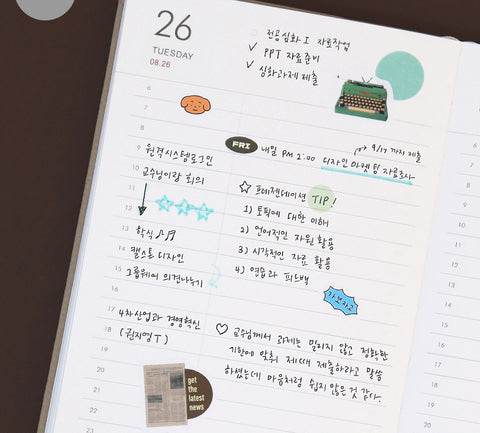 26
TUESDAY
08.26
전공심화 I 자료작업
✓ PPT 자료준비
✓ 심화과제 제출
6
7
8
9
10
11
12
13
14
15
16
17
18
19
20
23
원격시스템로그인
교수님이랑 회의
학식
캡스톤 디자인
그룹웨어 의견나누기
4차산업과 경영혁신
(권지영 T)
get
the
latest
news
FRI 내일 PM 2:00 디자인마켓팅 자료조사
9/17 까지 제출
프레젠테이션 TIP!
1) 토픽에 대한 이해
2) 언어적인 자원 활용
3) 시각적인 자료 활용
4) 연습과 피드백
가보자고
♡ 교수님께서 과제는 밀리지 않고 정확한
기한에 맞춰 제때 제출하라고 말씀
하셨는데 마음처럼 쉽지 않은 것 같다.